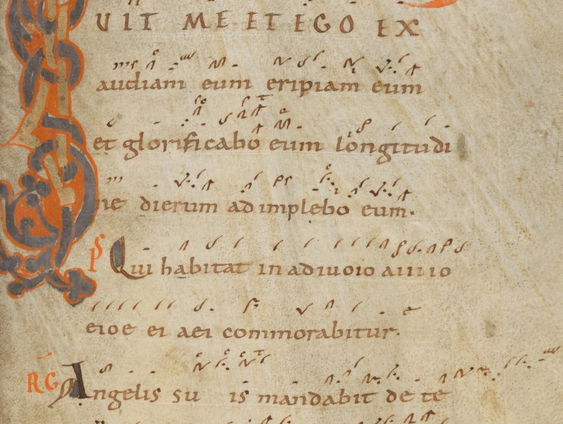 UIT ME ET EGO EX
audiam eum eripiam eum
et glorificabo eum longitudi
ne dierum adimplebo eum.
PS Qui habitat in adiuoio aiuiio
eioe ei aei commorabitur.
RG Angelis su is mandabit de te